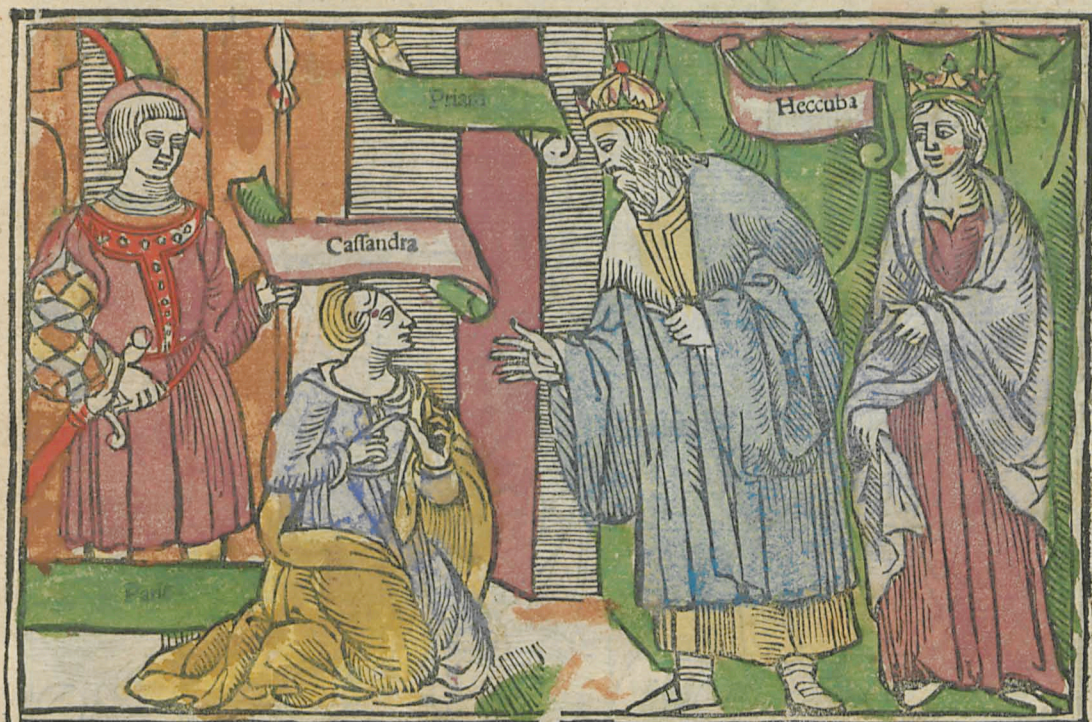 Priam
Heccuba
Caſſandra
Paris